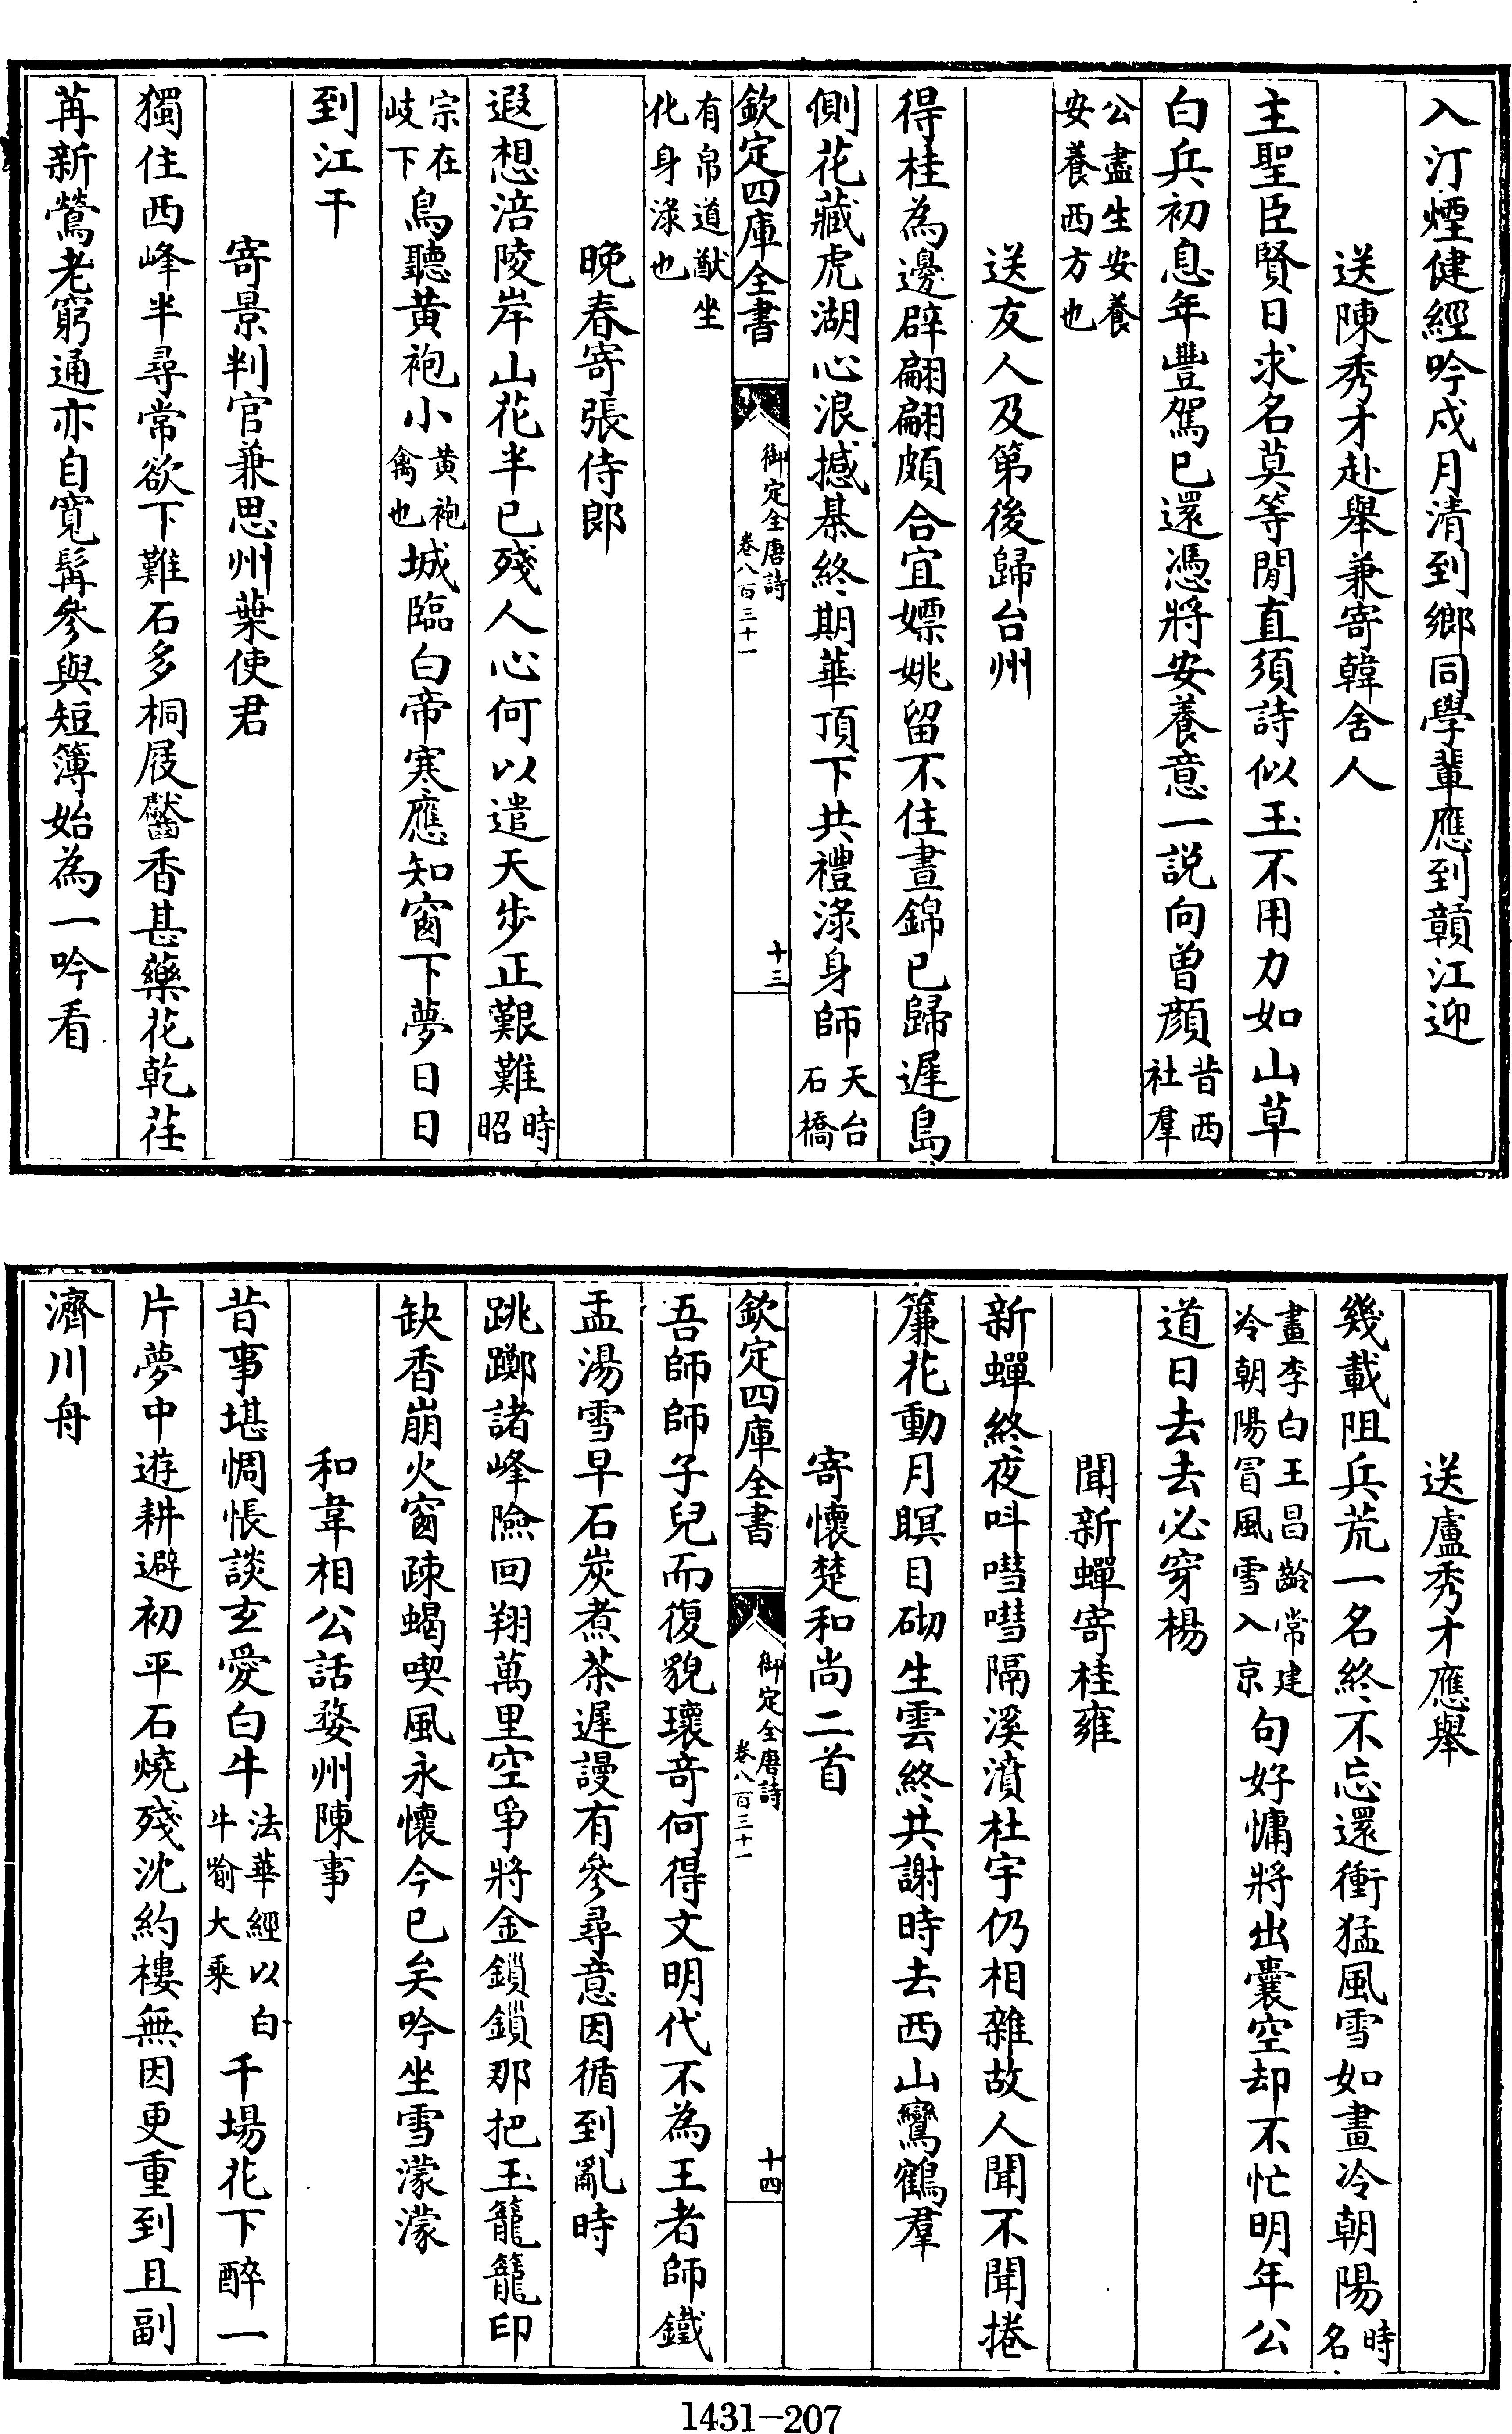 入汀煙健經吟戍月清到鄉同學輩應到贛江迎
送陳秀才赴舉兼寄韓舍人
主聖臣賢日求名莫等閒直須詩似玉不用力如山草
白兵初息年豐駕已還憑將安養意一說向曾顏昔西社羣
公盡生安養安養西方也
送友人及第後歸台州
得桂為邊辟翩翩頗合宜嫖姚留不住晝錦已歸遲島
側花藏虎湖心浪撼棊終期華頂下共禮淥身師天台石橋
欽定四庫全書
御定全唐詩
卷八百三十一
十三
有帛道猷坐化身淥也
晚春寄張侍郎
遐想涪陵岸山花半已殘人心何以遣天步正艱難時昭
宗在岐下鳥聽黃袍小黃袍禽也城臨白帝寒應知窗下夢日日
到江干
寄景判官兼思州葉使君
獨住西峰半尋常欲下難石多桐屐齾香甚藥花乾荏
苒新鶯老窮通亦自寬髯參與短簿始為一吟看
送盧秀才應舉
幾載阻兵荒一名終不忘還衝猛風雪如畫冷朝陽時名
畫李白王昌齡常建冷朝陽冒風雪入京句好慵將出囊空却不忙明年公
道日去去必穿楊
聞新蟬寄桂雍
新蟬終夜叫嘒嘒隔溪濆杜宇仍相雜故人聞不聞捲
簾花動月瞑目砌生雲終共謝時去西山鸞鶴羣
寄懷楚和尚二首
欽定四庫全書
御定全唐詩
卷八百三十一
十四
吾師師子兒而復貌瓌奇何得文明代不為王者師鐵
盂湯雪早石炭煮茶遲謾有參尋意因循到亂時
跳躑諸峰險回翔萬里空爭將金鎖鎖那把玉籠籠印
缺香崩火窗疎蝎喫風永懷今已矣吟坐雪濛濛
和韋相公話婺州陳事
昔事堪惆悵談玄愛白牛法華經以白牛喻大乘千場花下醉一
片夢中遊耕避初平石燒殘沈約樓無因更重到且副
濟川舟
1431-207